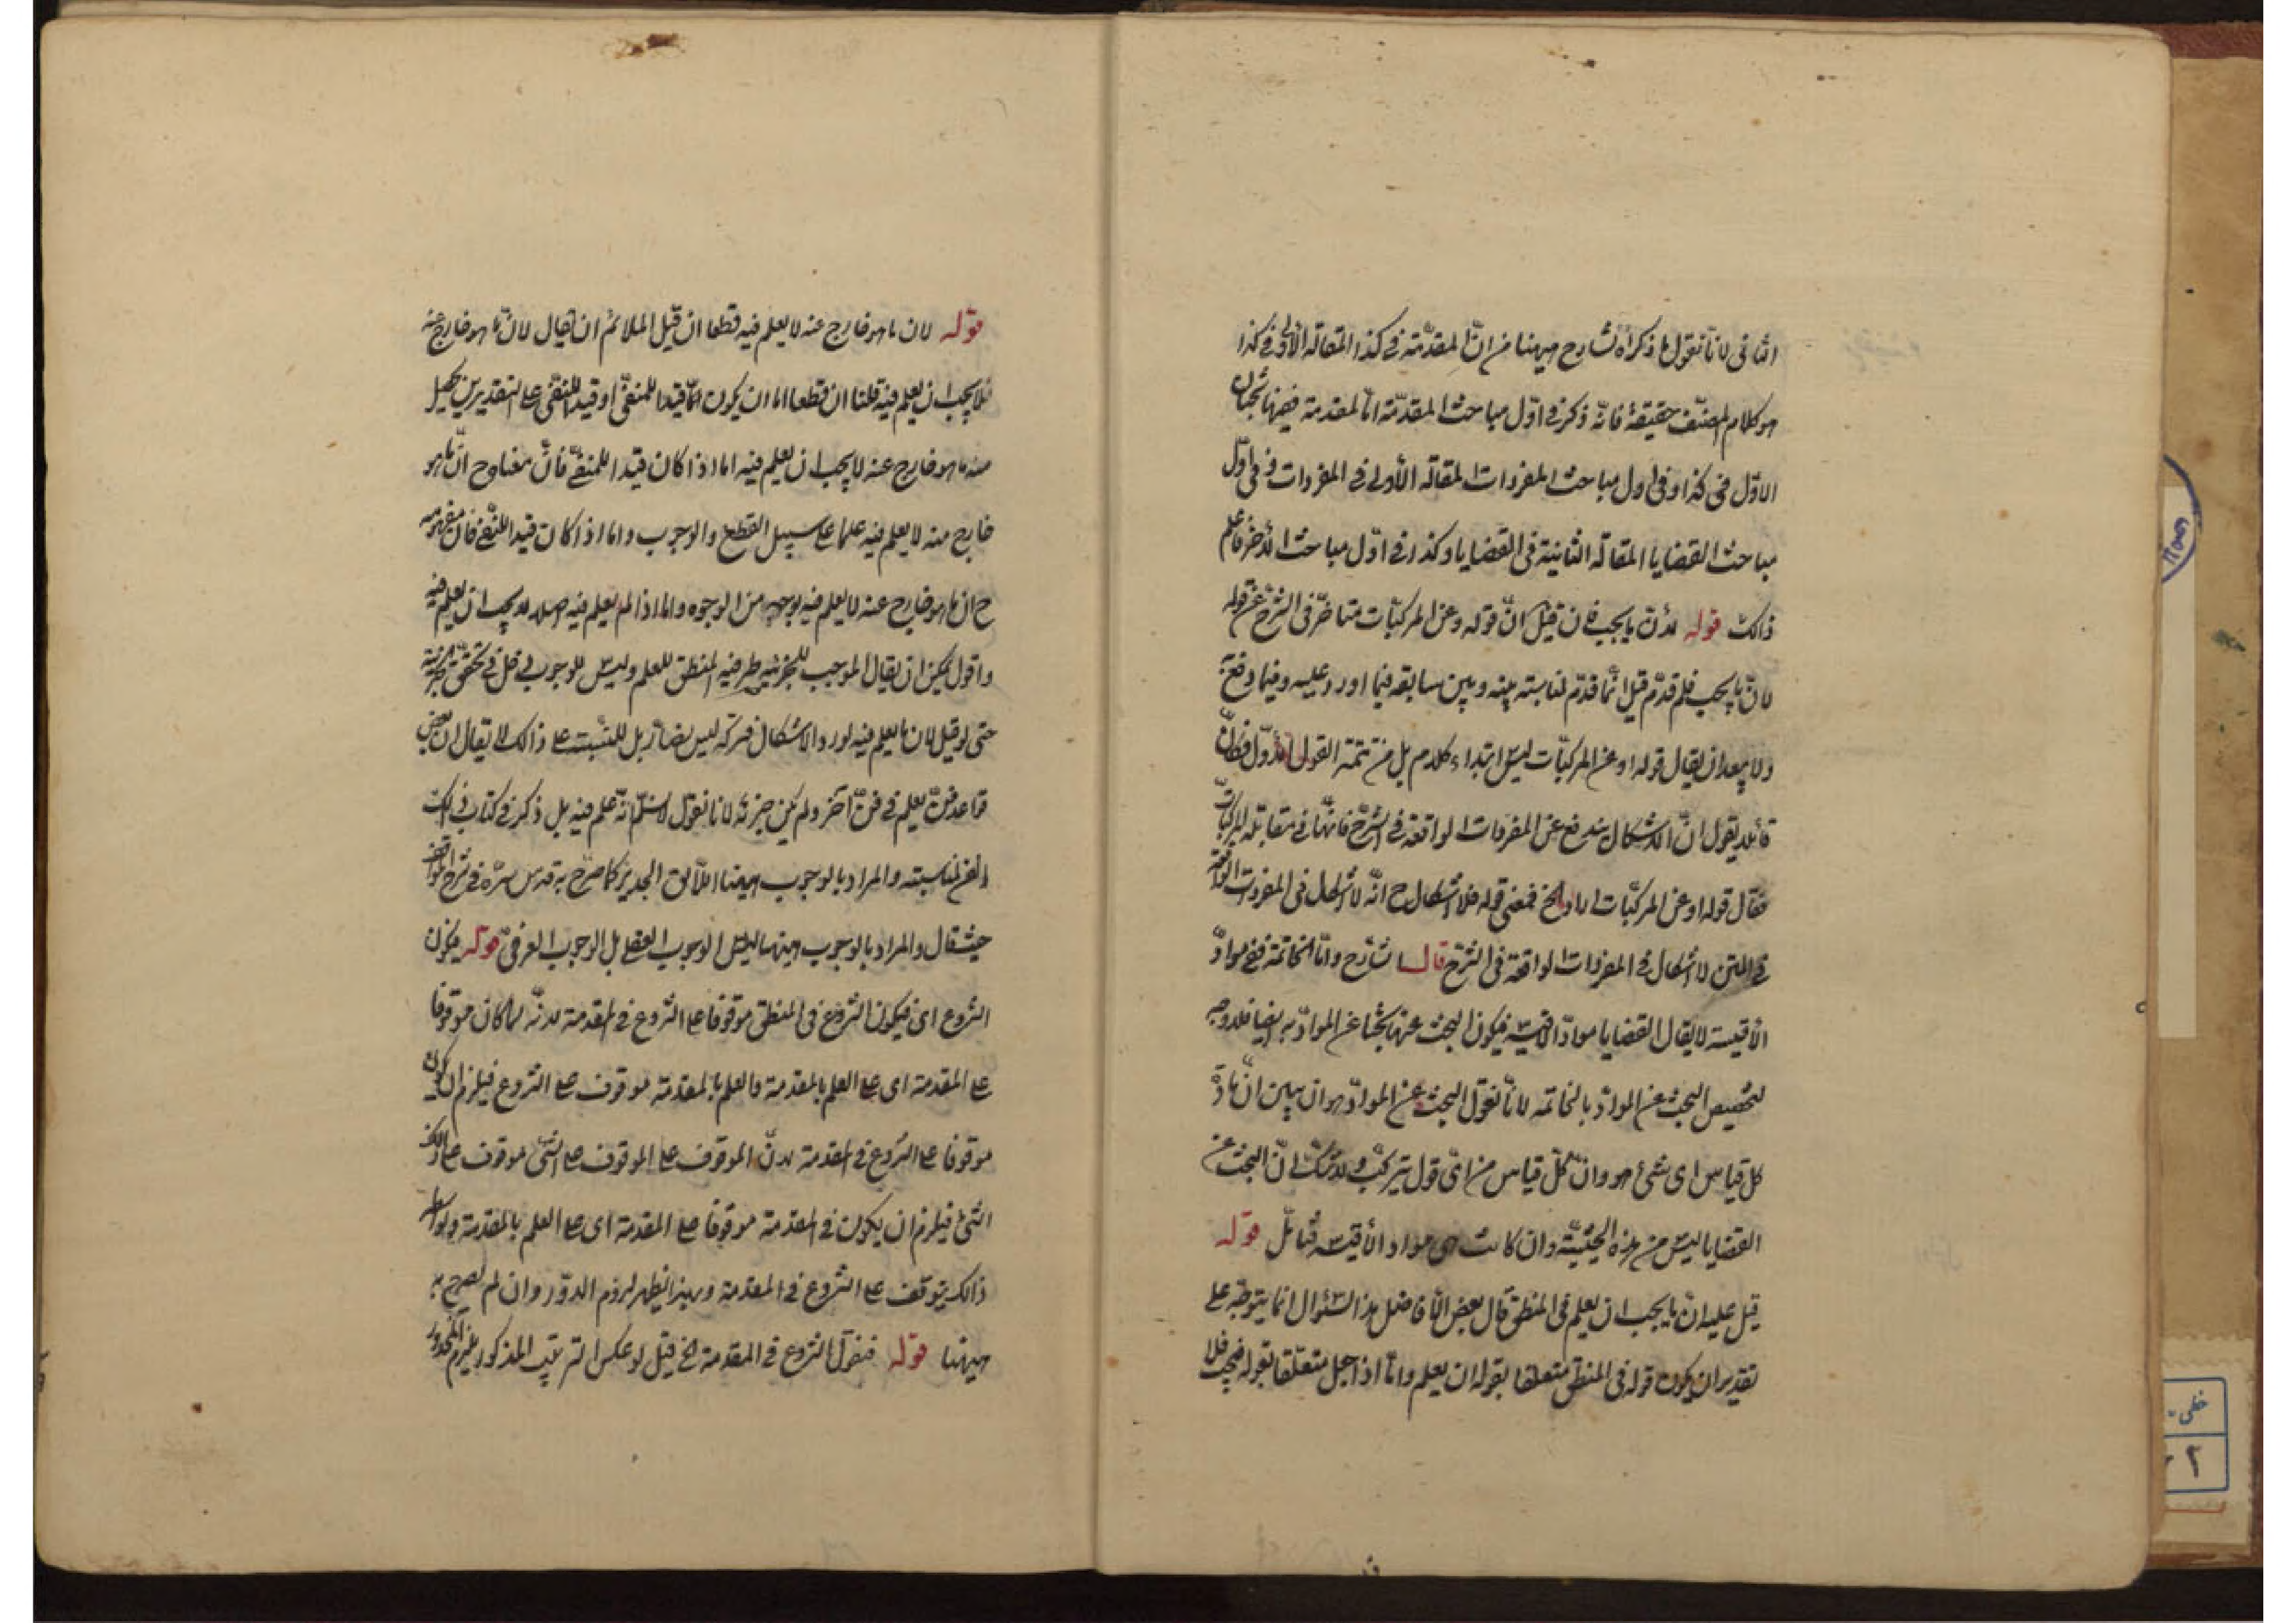 الثانى لانا نقول ما ذكره الشارح ههنا من انّ المقدّمة فى كذا المقالة الأولى فى كذا
هو كلام المصنّف حقيقة فانّه ذكر فى اوّل مباحث المقدّمة امّا المقدمة ففيها بحثان
الاوّل فى كذا وفى اول مباحث المفردات المقالة الأولى فى المفردات وفى اوّل
مباحث القضايا المقالة الثانية فى القضايا وكذا فى اوّل مباحث الأخر فاعلم
ذالك قوله لأن ما يجب فان قيل انّ قوله وعن المركبّات متاخّر فى الشرح عن قوله
لانّ ما يجب فلم قدّم قيل انّما قدّم لمناسبته بينه وبين سابقه فيما اورد عليه وفيما وقع
ولا يبعد ان يقال قوله او عن المركبّات ليس ابتداء كلام بل من تتمة القول الأوّل فكانّ
قائلا يقول انّ الاشكال يندفع عن المفردات الواقعة فى الشرح فانّها فى مقابلة المركبّات
فقال قوله او عن المركبّات الخ فمعنى قوله فلا اشكال ح انّه لا اشكال فى المفردات الواقعة
فى المتن لا اشكال فى المفردات الواقعة فى الشرح قال الشارح وامّا الخاتمة ففى موادّ
الأقيسة لا يقال القضايا موادّ الاقيسة فيكون البحث عنها بحثا عن الموادّ ايضا فلا وجه
لتخصيص البحث عن الموادّ بالخاتمه لانّا نقول البحث عن الموادّ هو ان يبين انّ مادّة
كل قياس اى شىء هو وانّ كلّ قياس من اىّ قول يتركب ولا شك انّ البحث عن
القضايا ليس من هذه الحيثيّة وان كانت هى مواد الأقيسة فتامّل قوله
قيل عليه انّ ما يجب ان يعلم فى المنطق قال بعض الأفاضل هذا السّئوال انما يتوجّه على
تقدير ان يكون قوله فى المنطق متعلقا بقوله ان يعلم وامّا اذا جعل متعلّقا بقوله يجب فلا
قوله لان ما هو خارج عنه لا يعلم فيه قطعا ان قيل الملائم ان يقال لانّ ما هو خارج عنه
لا يجب ان يعلم فيه قلنا ان قطعا اما ان يكون امّا قيدا للمنفىّ او قيد للنفى على التقديرين يحصل
منه ما هو خارج عنه لا يجب ان يعلم فيه اما اذا كان قيدا للمنفىّ فانّ مفاده ح انّ ما هو
خارج عنه لا يعلم فيه علما على سبيل القطع والوجوب واما اذا كان قيدا للنفى فان مفهومه
ح ان ما هو خارج عنه لا يعلم فيه بوجه من الوجوه واما اذا لم يعلم فيه اصلا لا يجب ان يعلم فيه
واقول يمكن ان يقال الموجب للجزئيه ظرفيه المنطق للعلم وليس للوجوب دخل فى تحقّق الجزئية
حتى لو قيل لان ما يعلم فيه لورد الاشكال فتركه ليس بضارّ بل للتنبيه على ذالك لا يقال ان بعض
قواعد فنّ يعلم فى فنّ آخر ولم يكن جزئه لانا نقول لا نسلّم انّه علم فيه بل ذكر فى كتاب ذالك
الفن لمناسبته والمراد بالوجوب ههنا اللّائق الجدير كما صرّح به قدس سرّه فى شرح المواقف
حيث قال والمراد بالوجوب ههنا ليس الوجوب العقلى بل الوجوب العرفىّ قوله يكون
الشروع اى فيكون الشروع فى المنطق موقوفا على الشروع فى المقدمة لانّه لما كان موقوفا
على المقدمة اى على العلم بالمقدمة والعلم بالمقدمة موقوف على الشروع فيلزم ان يكون
موقوفا على الشروع فى المقدمة لانّ الموقوف على الموقوف على الشىء موقوف على ذالك
الشىء فيلزم ان يكون فى المقدمة موقوفا على المقدمة اى على العلم بالمقدمة ولواسطة
ذالك يتوقف على الشروع فى المقدمة وبهذا يظهر لزوم الدوّر وان لم يصرح به
ههنا قوله فنقول الشروع فى المقدمة الخ قيل لو عكس الترتيب المذكور يلزم المحذور